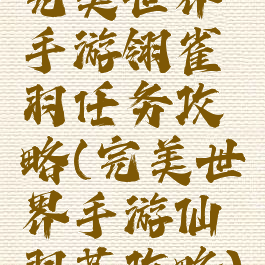 完美世界
手游翎雀
羽任务攻
略(完美世
界手游仙
羽其攻略)